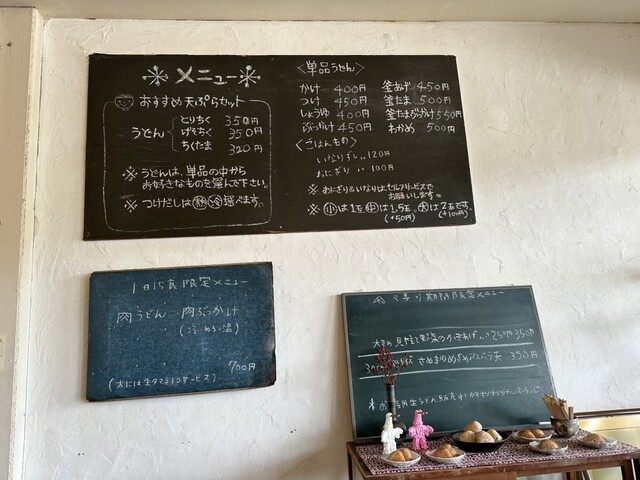 メニュー
おすすめ天ぷらセット
うどん
とりちく 350円
げそちく 350円
ちくたま 320円
※うどんは、単品の中から
お好きなものを選んで下さい。
※つけだしは 熱 冷 選べます。
〈単品うどん〉
かけ 400円
つけ 450円
しょうゆ 400円
ぶっかけ 450円
釜あげ 450円
釜たま 500円
釜たまぶっかけ 550円
わかめ 500円
〈ごはんもの〉
いなりずし‥120円
おにぎり‥100円
※おにぎり&いなりはセルフサービスで
お願いします。
※小は1玉 中は1.5玉、大は2玉です。
(+50円) (+100円)
1日15食限定メニュー
肉うどん・肉ぶっかけ
(冷 or 温)
700円
(大には生タマゴ1コサービス)
期間限定メニュー
350円
390円